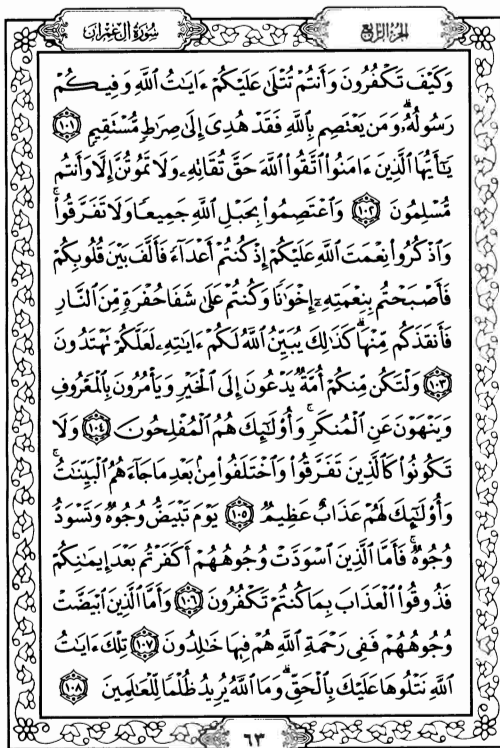 سُورَةُ آلِ عِمْرَانَ
الجُزْءُ الرَّابِعُ
وَكَيْفَ تَكْفُرُونَ وَأَنتُمْ تُتْلَىٰ عَلَيْكُمْ ءَايَٰتُ ٱللَّهِ وَفِيكُمْ
رَسُولُهُۥ ۗ وَمَن يَعْتَصِم بِٱللَّهِ فَقَدْ هُدِىَ إِلَىٰ صِرَٰطٍ مُّسْتَقِيمٍ ١٠١
يَٰٓأَيُّهَا ٱلَّذِينَ ءَامَنُوا۟ ٱتَّقُوا۟ ٱللَّهَ حَقَّ تُقَاتِهِۦ وَلَا تَمُوتُنَّ إِلَّا وَأَنتُم
مُّسْلِمُونَ ١٠٢ وَٱعْتَصِمُوا۟ بِحَبْلِ ٱللَّهِ جَمِيعًا وَلَا تَفَرَّقُوا۟ ۚ
وَٱذْكُرُوا۟ نِعْمَتَ ٱللَّهِ عَلَيْكُمْ إِذْ كُنتُمْ أَعْدَآءً فَأَلَّفَ بَيْنَ قُلُوبِكُمْ
فَأَصْبَحْتُم بِنِعْمَتِهِۦٓ إِخْوَٰنًا وَكُنتُمْ عَلَىٰ شَفَا حُفْرَةٍ مِّنَ ٱلنَّارِ
فَأَنقَذَكُم مِّنْهَا ۗ كَذَٰلِكَ يُبَيِّنُ ٱللَّهُ لَكُمْ ءَايَٰتِهِۦ لَعَلَّكُمْ تَهْتَدُونَ
١٠٣ وَلْتَكُن مِّنكُمْ أُمَّةٌ يَدْعُونَ إِلَى ٱلْخَيْرِ وَيَأْمُرُونَ بِٱلْمَعْرُوفِ
وَيَنْهَوْنَ عَنِ ٱلْمُنكَرِ ۚ وَأُو۟لَٰٓئِكَ هُمُ ٱلْمُفْلِحُونَ ١٠٤ وَلَا
تَكُونُوا۟ كَٱلَّذِينَ تَفَرَّقُوا۟ وَٱخْتَلَفُوا۟ مِنۢ بَعْدِ مَا جَآءَهُمُ ٱلْبَيِّنَٰتُ ۚ
وَأُو۟لَٰٓئِكَ لَهُمْ عَذَابٌ عَظِيمٌ ١٠٥ يَوْمَ تَبْيَضُّ وُجُوهٌ وَتَسْوَدُّ
وُجُوهٌ ۚ فَأَمَّا ٱلَّذِينَ ٱسْوَدَّتْ وُجُوهُهُمْ أَكَفَرْتُم بَعْدَ إِيمَٰنِكُمْ
فَذُوقُوا۟ ٱلْعَذَابَ بِمَا كُنتُمْ تَكْفُرُونَ ١٠٦ وَأَمَّا ٱلَّذِينَ ٱبْيَضَّتْ
وُجُوهُهُمْ فَفِى رَحْمَةِ ٱللَّهِ هُمْ فِيهَا خَٰلِدُونَ ١٠٧ تِلْكَ ءَايَٰتُ
ٱللَّهِ نَتْلُوهَا عَلَيْكَ بِٱلْحَقِّ ۗ وَمَا ٱللَّهُ يُرِيدُ ظُلْمًا لِّلْعَٰلَمِينَ ١٠٨
٦٣